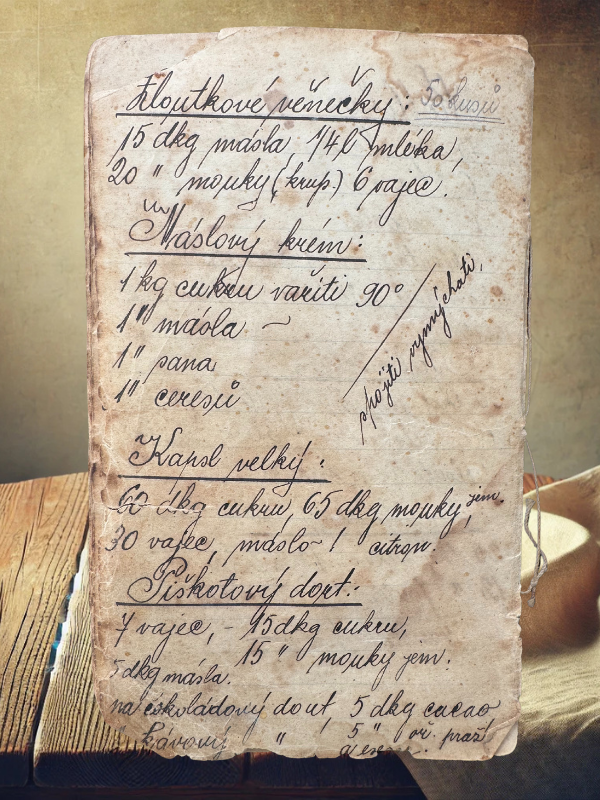 Žloutkové věnečky: 50 kusů
15 dkg másla, 1/4 l mléka,
20 " mouky (krup.) 6 vajec.
Máslový krém:
1 kg cukru vařiti 90°
1 " másla ~
1 " sana
1 " ceresů
spojiti vymíchati,
Kapsl velký:
60 dkg cukru, 65 dkg mouky, jem.
30 vajec, máslo ! citron.
Piškotový dort:
7 vajec, - 15 dkg cukru,
15 " mouky jem.
5 dkg másla.
na čokoládový dort, 5 dkg cacao
kávový " 5 " oř. praž.